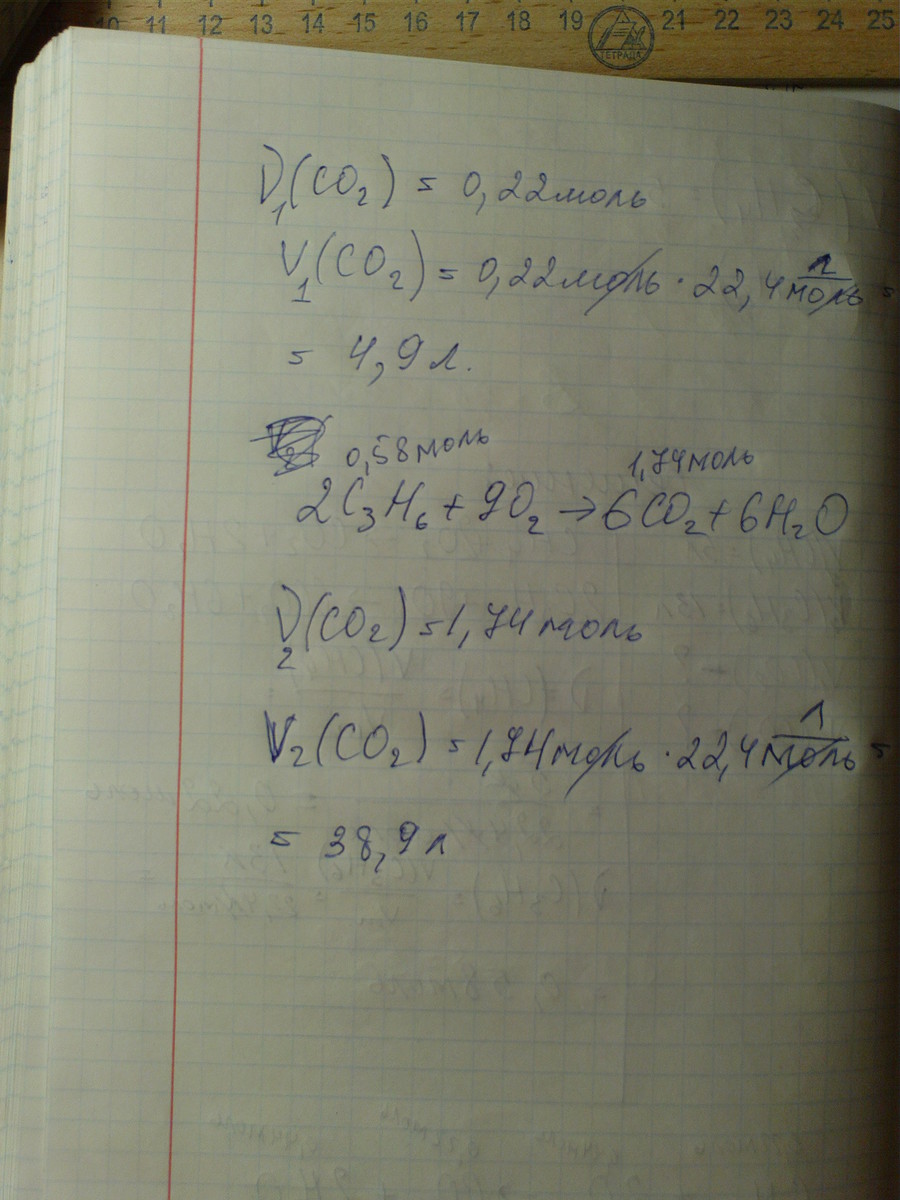 10 11 12 13 14 15 16 17 18 19 21 22 23 24 25
ТЕТРАДА
ν₁(CO₂) = 0,22моль
V₁(CO₂) = 0,22моль · 22,4 л/моль =
= 4,9 л.
0,58моль 1,74моль
2C₃H₆ + 9O₂ → 6CO₂ + 6H₂O
ν₂(CO₂) = 1,74моль
V₂(CO₂) = 1,74моль · 22,4 л/моль =
= 38,9 л